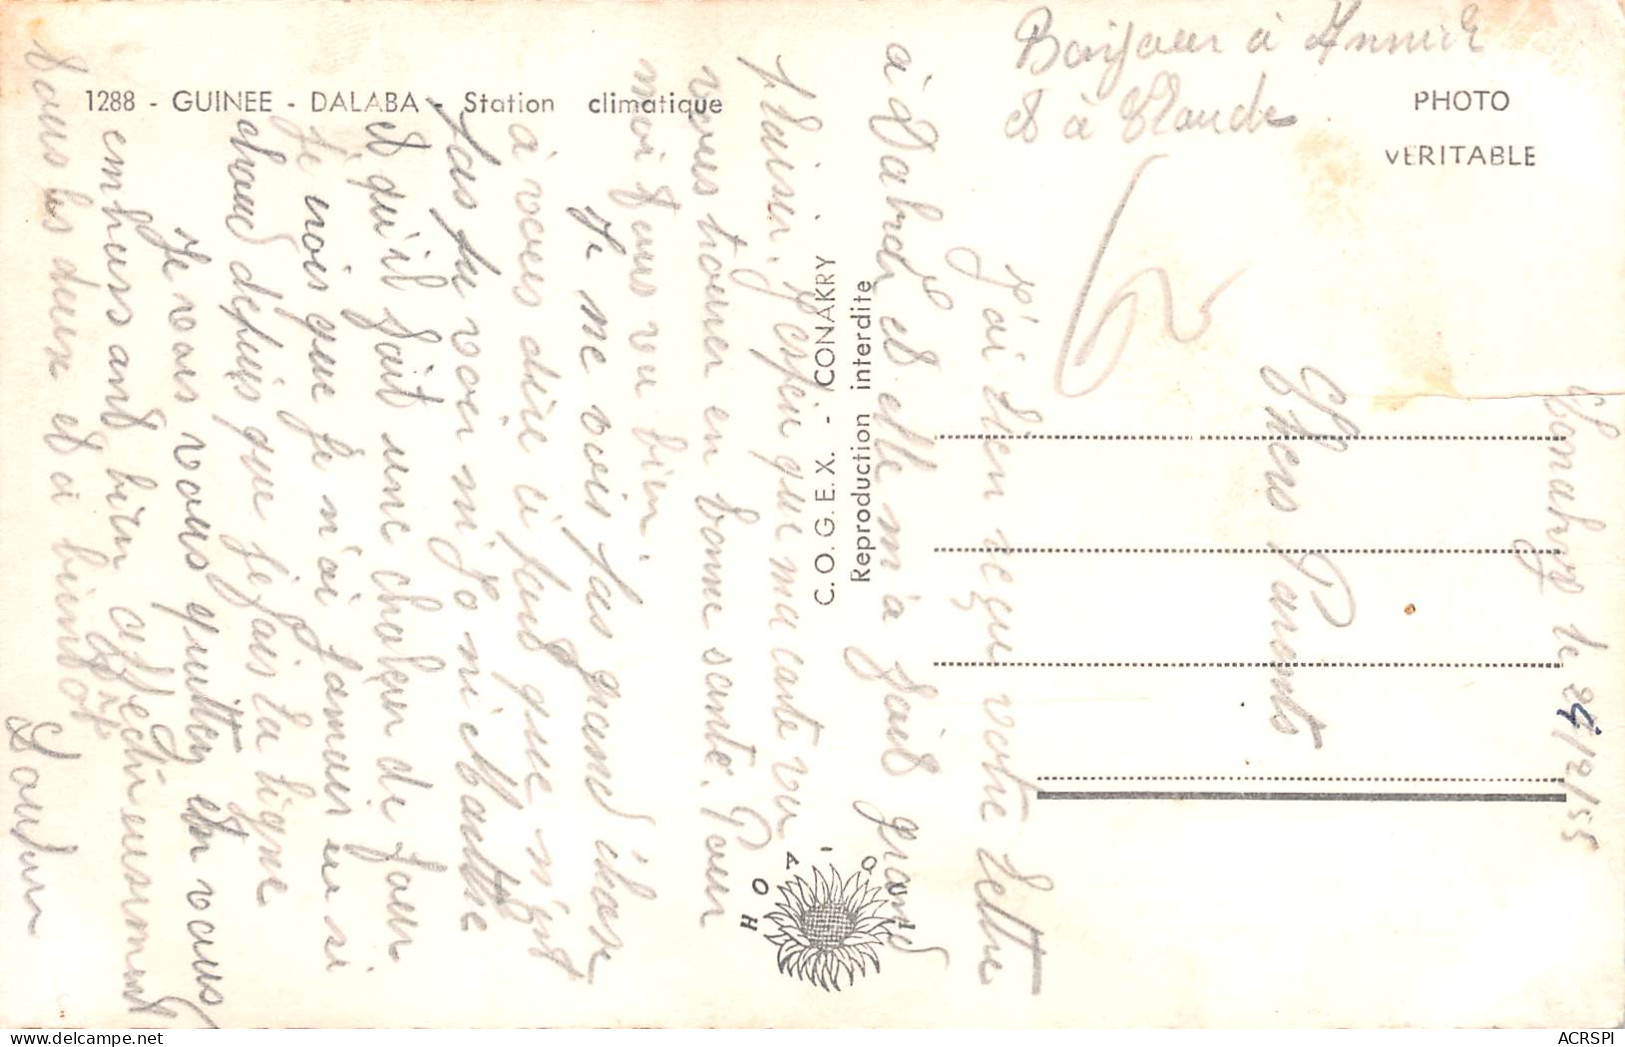 Bonjour à Annick
et à Claude
PHOTO
VERITABLE
1288 - GUINEE - DALABA - Station climatique
Conakry le 24/2/55
Chers Parents
j'ai bien reçu votre lettre
à et elle m'a fait grand
plaisir. J'espère que ma carte va
vous trouver en bonne santé. Pour
moi tous va bien.
Je ne vois pas grand chose
à vous dire ci
pas pu voir ni Jo ni
et qu'il fait une chaleur de four
Je crois que je n'ai jamais eu si
chaud depuis que je fais la ligne
Je vais vous quitter en vous
embrassant bien affectueusement
tous les deux et à bientôt
C.O.G.E.X. - CONAKRY
Reproduction interdite
HOA-QUI